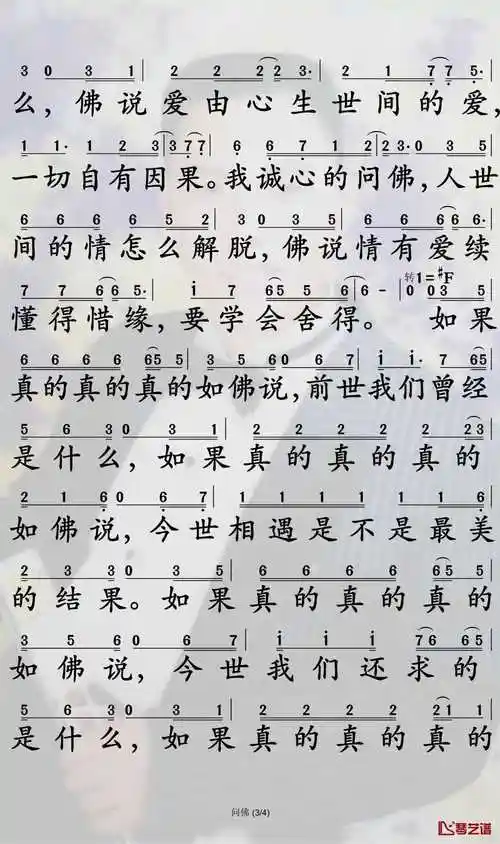 3 0 3 1 | 2 2 2 2 2 3· | 2 1 7 7 5·
么，佛说爱由心生世间的爱，
1 1· 1 1 2 3 | 3 7 7· 6 6 1 2 | 2 3· 0 3 5
一切自有因果。我诚心的问佛，人世
6 6 6 6 5 2 | 3 0 3 5 | 6 6 6 6 6 6·
间的情怎么解脱，佛说情有爱续
7 7 6 6 5· | i 7 6 5 5 6 | 6 - 转1=#F 0 0 3 5
懂得惜缘，要学会舍得。 如果
6 6 6 6 6 5 5 | 3 5 6 0 6 7 | i i· 7 6 5
真的真的真的如佛说，前世我们曾经
5 6 3 0 3 1 | 2 2 2 2 2 2 3
是什么，如果真的真的真的
2 1 6 0 6 7 | 1 1 1 1 1 1 6
如佛说，今世相遇是不是最美
2 3 3 0 3 5 | 6 6 6 6 6 5 5
的结果。如果真的真的真的
3 5 6 0 6 7 | i i i i 7 6 6 5
如佛说，今世我们还求的
5 6 3 0 3 1 | 2 2 2 2 2 1 1
是什么，如果真的真的真的
问佛 (3/4)
琴艺谱